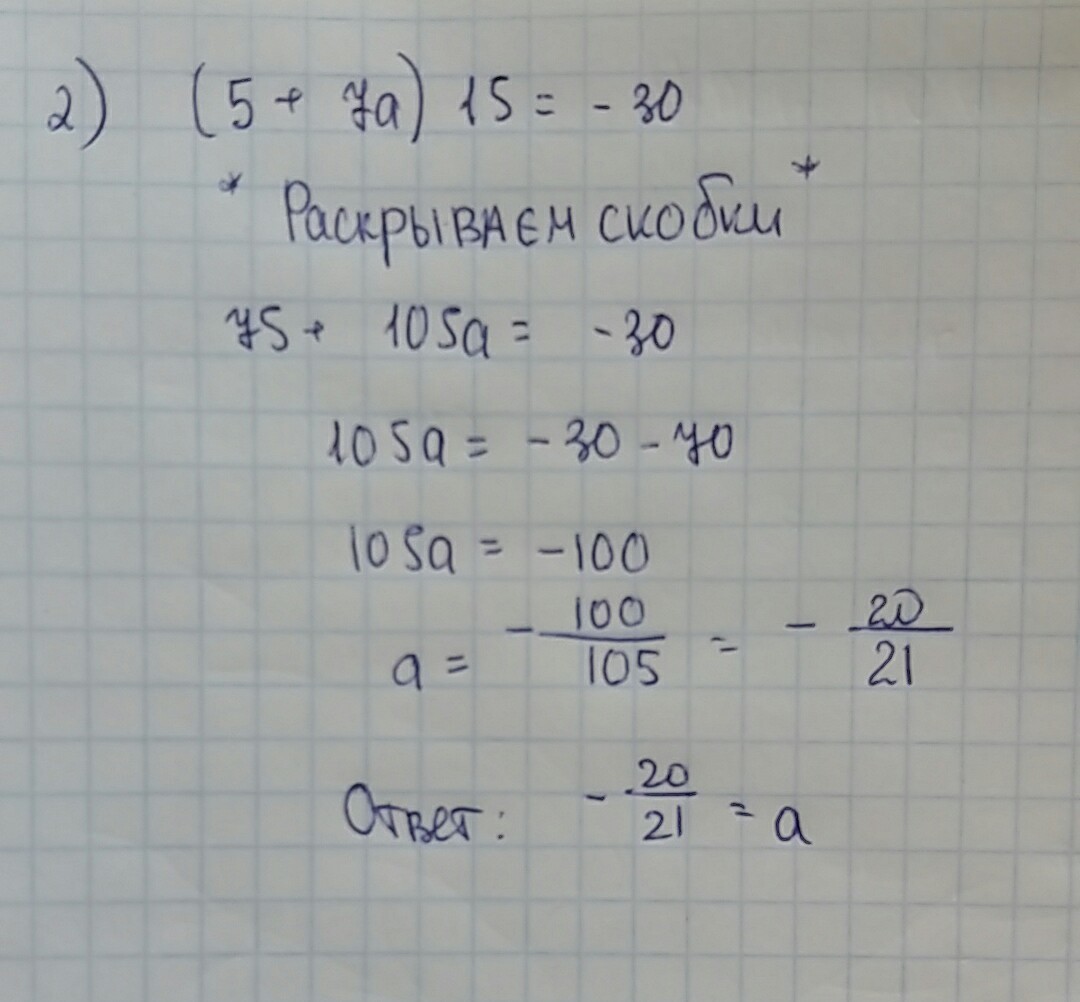 2) (5 + 7a) 15 = - 30
* Раскрываем скобки *
75 + 105a = - 30
105a = - 30 - 70
105a = - 100
a = - 100/105 = - 20/21
Ответ: - 20/21 = a